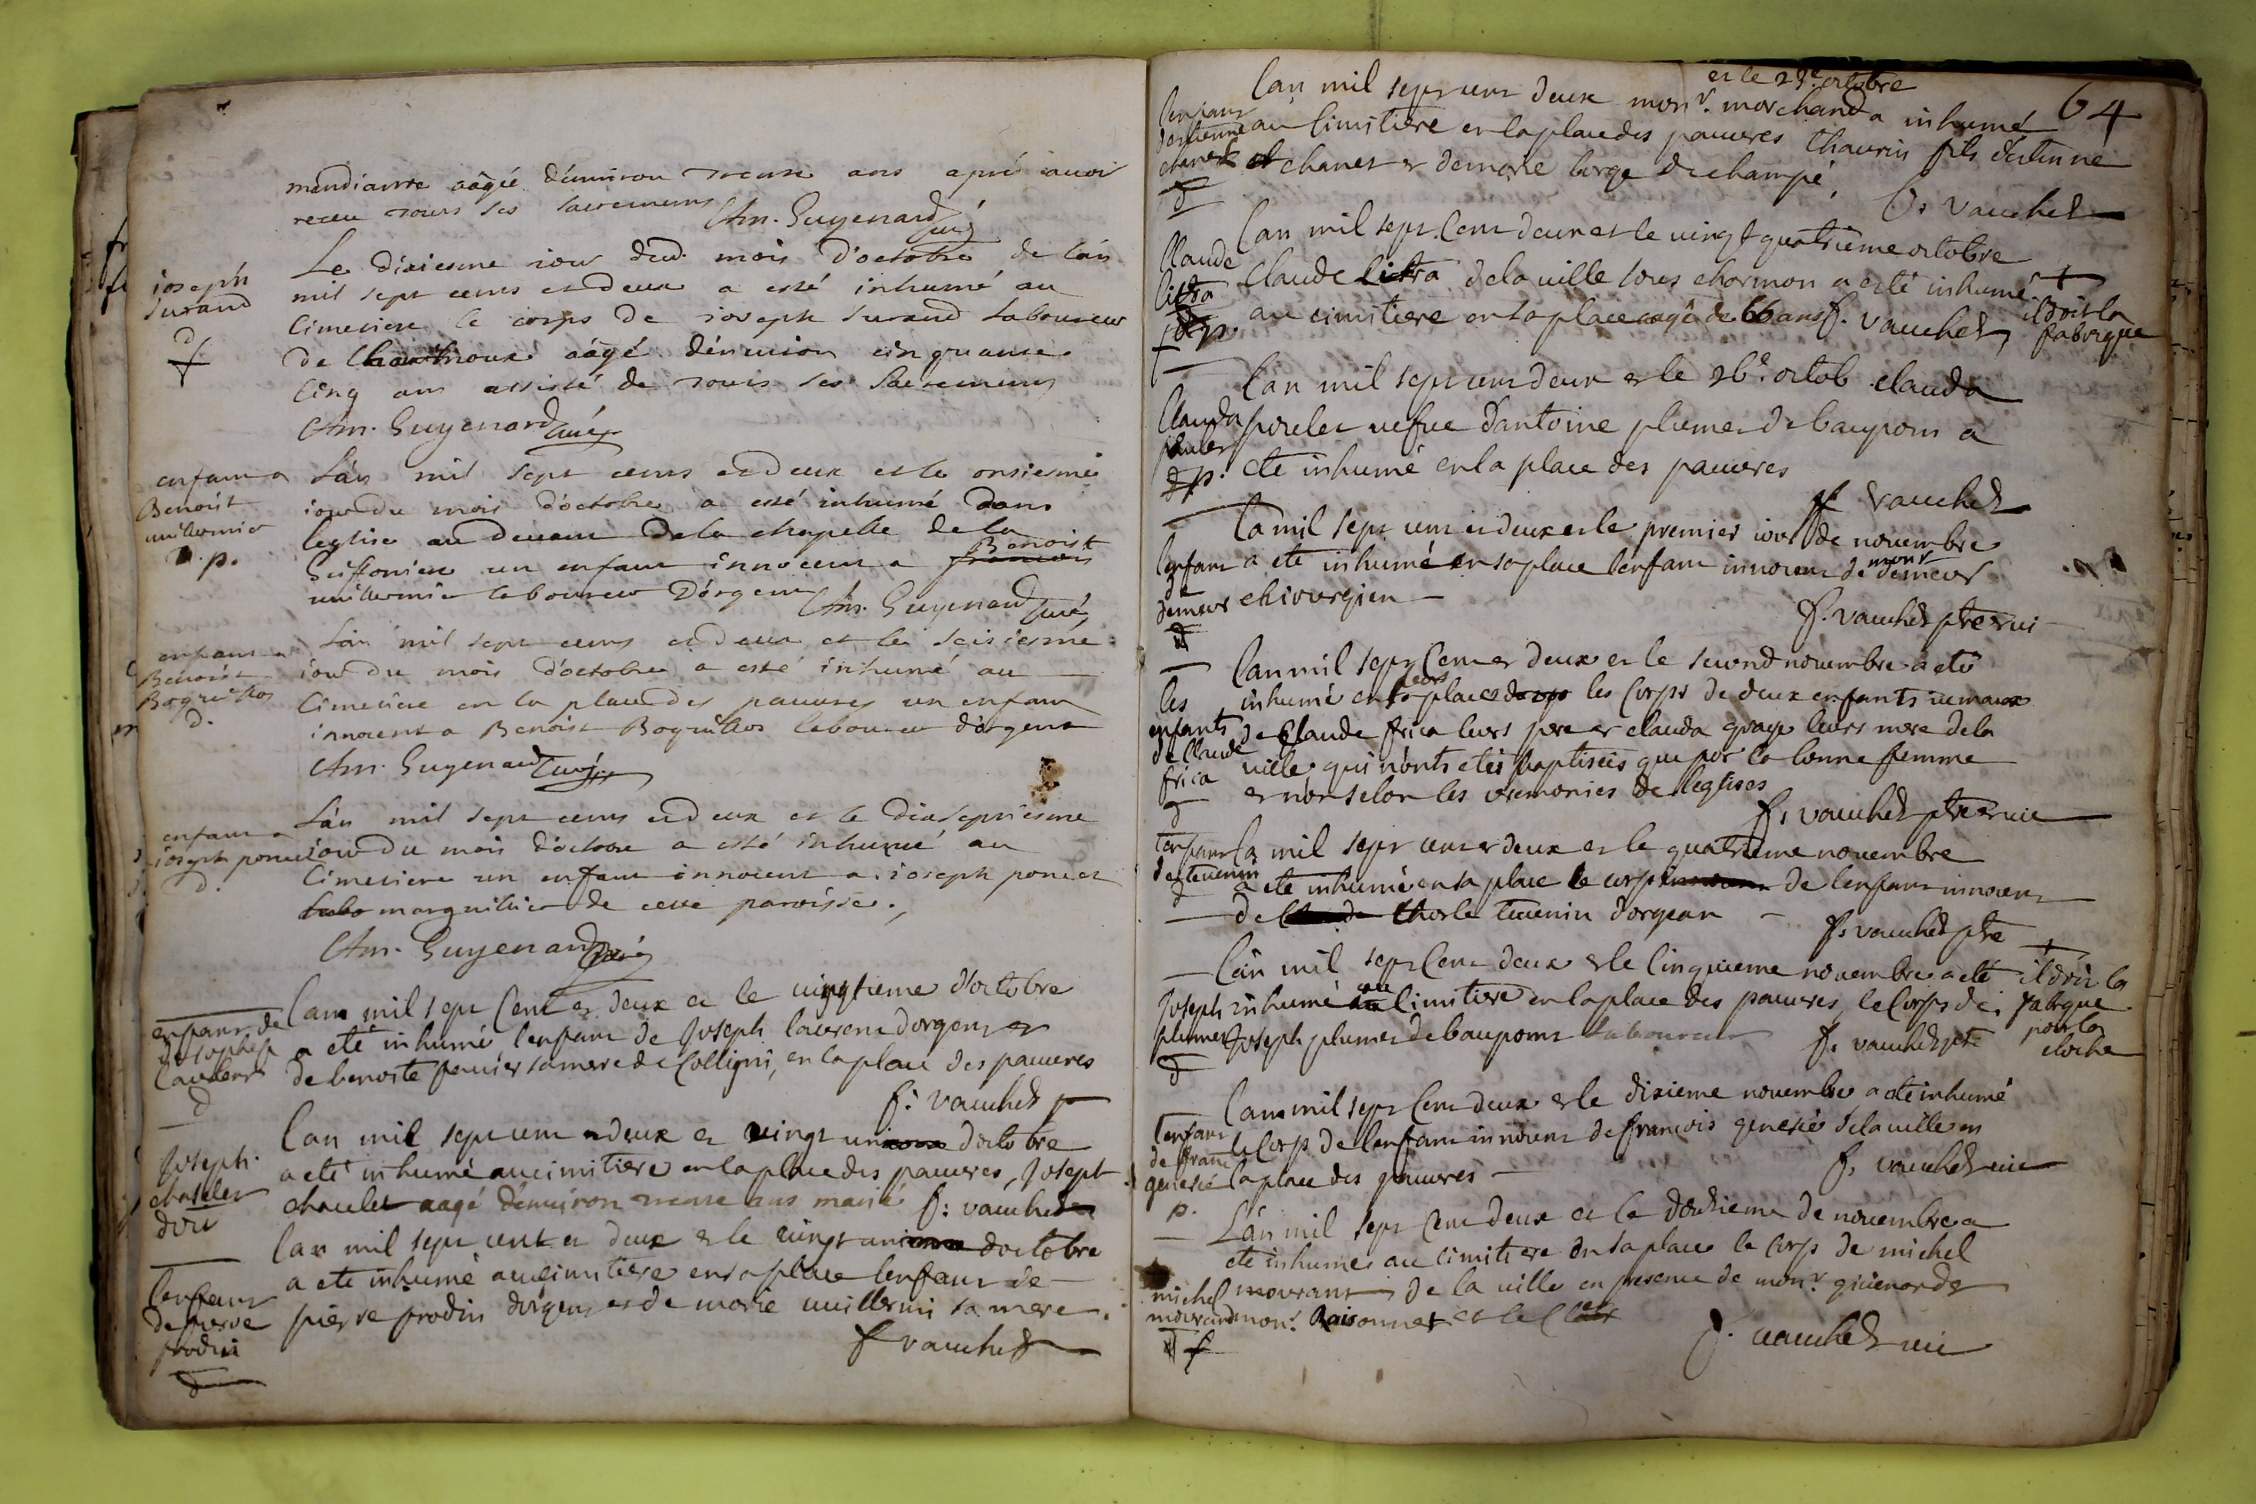 mendiante aâgéé d'enuiron trente ans apré auoir
receu tours ses sacremens Am. Guyenard curé
ioseph
Durand
d.
f
Le dixiesme iour dud. mois d'octobre de l'an
mil sept cents et deux a esté inhumé au
Cimetiere le corps de ioseph Durand laboureur
de aâgé d'enuiron cinquante
Cinq ans assisté de tours ses Sacremens
Am. Guyenard curé
enfant a
Benoist
uuillermier
p.
L'an mil sept cents et deux et le onsiesme
iour du mois d'octobre a esté inhumé dans
leglise au deuant de la chapelle de la
Guffoniere un enfant innocent a francois Benoist
uuillermier laboureur D'orgent Am. Guyenard curé
enfant a
Benoist
Boquillos
d.
L'an mil sept cents et deux et le seisiesme
iour du mois d'octobre a esté inhumé au
Cimetiere en la place des pauures un enfant
innocent a Benoist Boquillos laboureur d'orgent
Am. Guyenard curé
enfant a
ioseph poncet
d.
L'an mil sept cents et deux et le dixseptiesme
iour du mois d'octobre a esté inhumé au
Cimetiere un enfant innocent a ioseph poncet
labo marguillier de cette paroisse.
Am. Guyenard curé
enfant de
Joseph
Laurent
d
Lan mil sept Cent et deux et le uingtieme d'octobre
a eté inhumé l'enfant de Joseph laurent dorgent et
de benoite feurier sa mere de Colligni, en la place des pauures
f: vauchez p
Joseph
chatelet
doit
Lan mil sept cent et deux et uingt un doctobre
a eté inhumé au cimitiere en la place des pauures, Joseph
chatelet aagé d'enuiron trente ans marié f: vauchez
l'enfant
de pierre
prodin
d
lan mil sept cent et deux et le uingt un doctobre
a eté inhumé au cimitiere en sa place lenfant de
pierre prodin dorgent et de marie uuillermi sa mere.
f vauchez
64
et le 23e octobre
l'enfant
destienne
chanet
d
lan mil sept cent deux monr. marchand a inhumé
au Cimitiere en la place des pauures thaurin fils destienne
chanet et de marie large de champé,
f. vauchez
Claude
p.
lan mil sept Cent deux et le uingt quatrième octobre
Claude de la uille sous charmon a eté inhumé
au cimitiere en sa place aagé de 66 ans f. vauchez
+
il doit la
fabrique
Clauda
poulet
d p.
lan mil sept cent deux et le 26e. octob clauda
poulet uefue d'antoine plumet de baupont a
eté inhumé en la place des pauures
f vauchez
l'enfant
de
demeur
d
La mil sept cent et deux et le premier iour de novembre
a eté inhumé en sa place lenfant innocent de monr demeur
chirurgien
f. vauchez ptre vic
les
enfants
de Claude
frica
d
lan mil sept Cent et deux et le second nouembre a eté
inhumé en leurs places les corps de deux enfants iumaux
de Claude frica leurs pere et clauda leurs mere de la
uille qui n'onts etés baptisées que par la bonne femme
et non selon les ceremonies de leglises
f. vauchez ptre vic
l'enfant
de teuenin
d
La mil sept cent et deux et le quatrieme nouembre
a eté inhumé en sa place le corps de lenfant innocent
de charle teuenin dorgean
f. vauchez ptre
Joseph
plumet
d
Lan mil sept Cent deux et le Cinquieme nouembre a eté
inhumé au Cimitiere en la place des pauures, le Corps de
Joseph plumet de baupont laboureur f. vauchez ptre
+
il doit la
fabrque
pour la
cloche
l'enfant
de franc
genetié
p.
Lan mil sept Cent deux et le dixieme nouembre a eté inhumé
le Corps de lenfant innocent de francois genetié de la uille en
la place des pauures
f. vauchez uic
michel
mourand
f
Lan mil sept Cent deux et le douzieme de nouembre a
eté inhumer au cimitiere en sa place le corps de michel
mourant de la uille en presence de monr guienard et
monr. Raisonnet et le Clerc
f. vauchez uic